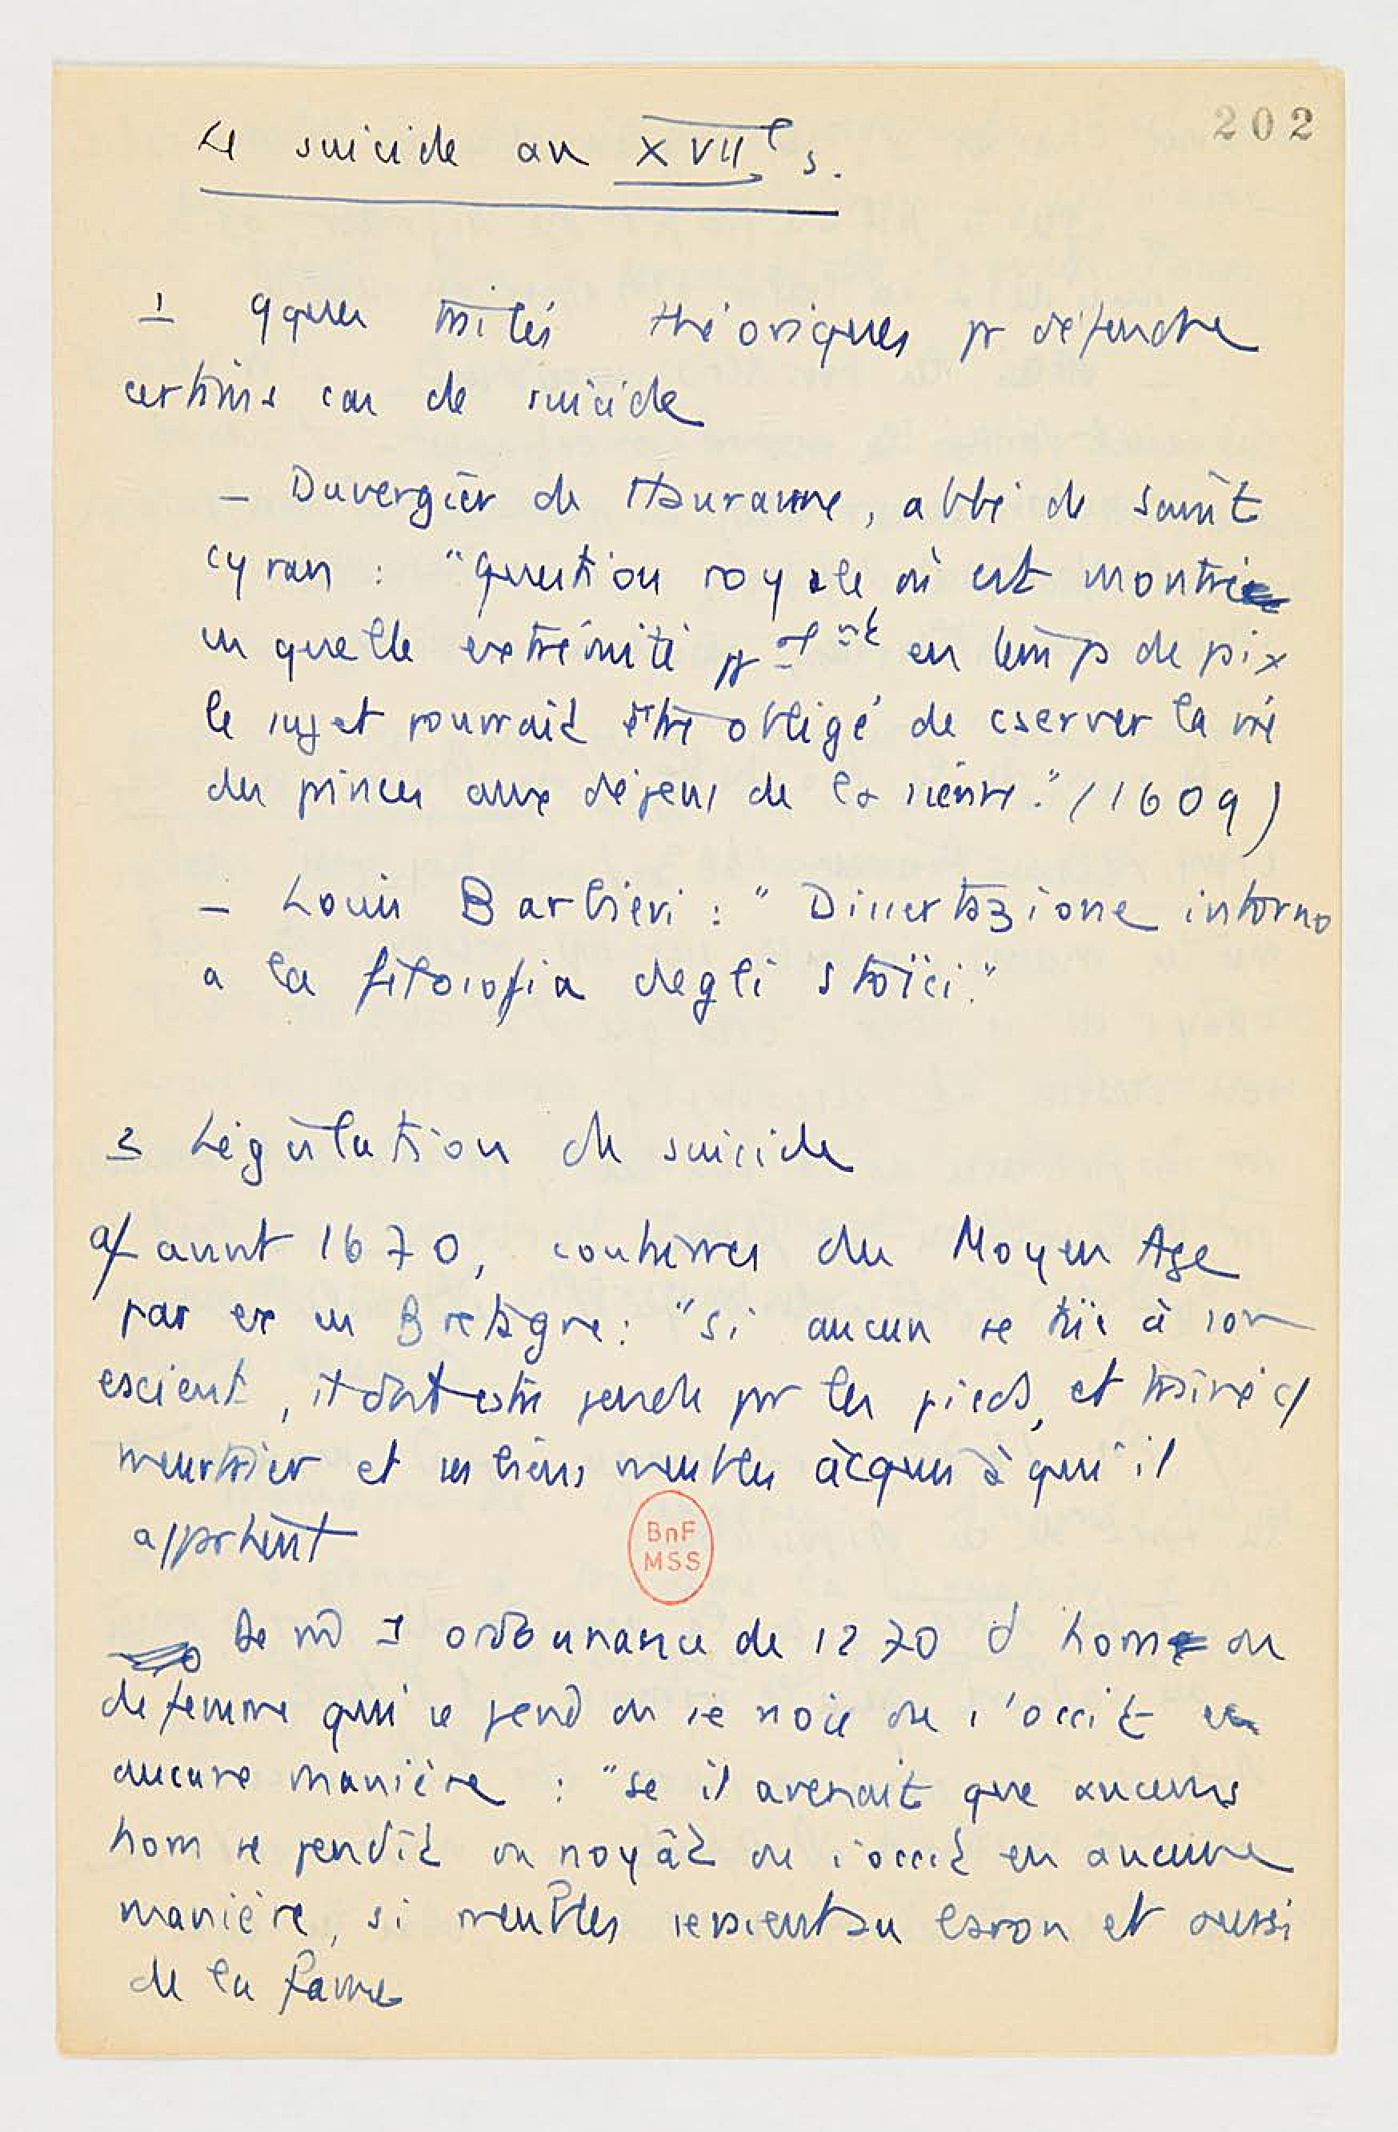 202
Le suicide au XVIIe s.
1 qques traités théoriques pr défendre
certains cas de suicide
– Duvergier de Hauranne, abbé de Saint
Cyran : "Question royale où est montré
en quelle extrémité pplmt en temps de pix
le sujet pourrait être obligé de cserver la vie
des princes aux dépens de la sienne." (1609)
– Louis Barbieri : "Dissertazione intorno
a la filosofia degli stoïci."
2 Législation du suicide
a/ avant 1670, coutumes du Moyen Age
par ex en Bretagne : "Si aucun se tüe à son
escient, il doit estre pendu par les pieds, et traîné c/
meurtrier et ses biens meubles acquis à qui il
appartient
de m ordonnance de 1270 d hom ou
de femme qui se pend ou se noie ou s'occit en
aucune manière : "Se il avenait que aucuns
hom se pendît ou noyât ou s'occit en aucune
manière, si meubles seraient au baron et aussi
de la fame